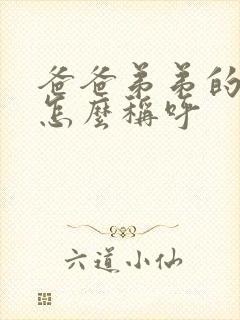 爸爸弟弟的
怎麼稱呼
六道小仙